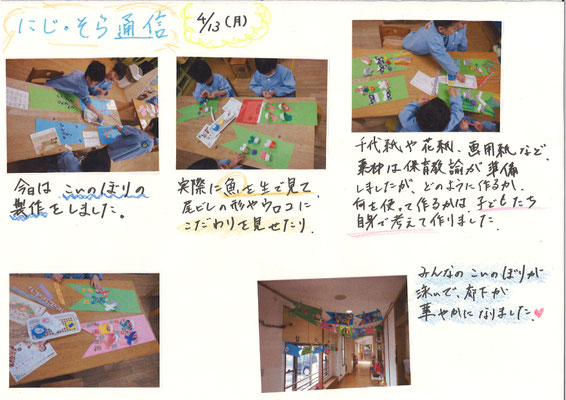 にじ・そら通信 4/13(月)
今日は こいのぼりの
製作をしました。
実際に魚を生で見て、
尾ビレの形やウロコに
こだわりを見せたり、
千代紙や花紙、画用紙など、
素材は保育教諭が準備
しましたが、どのように作るか、
何を使って作るかは、子どもたち
自身で考えて作りました。
みんなのこいのぼりが
泳いで、廊下が
華やかになりました♥